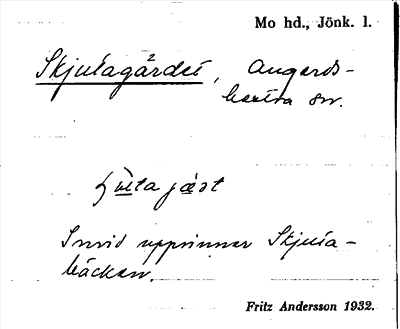 Mo hd., Jönk. l.
Skjutagärdet, Angerds-
hestra sn.
Snvid upprinner Skjuta-
bäcken.
Fritz Andersson 1932.